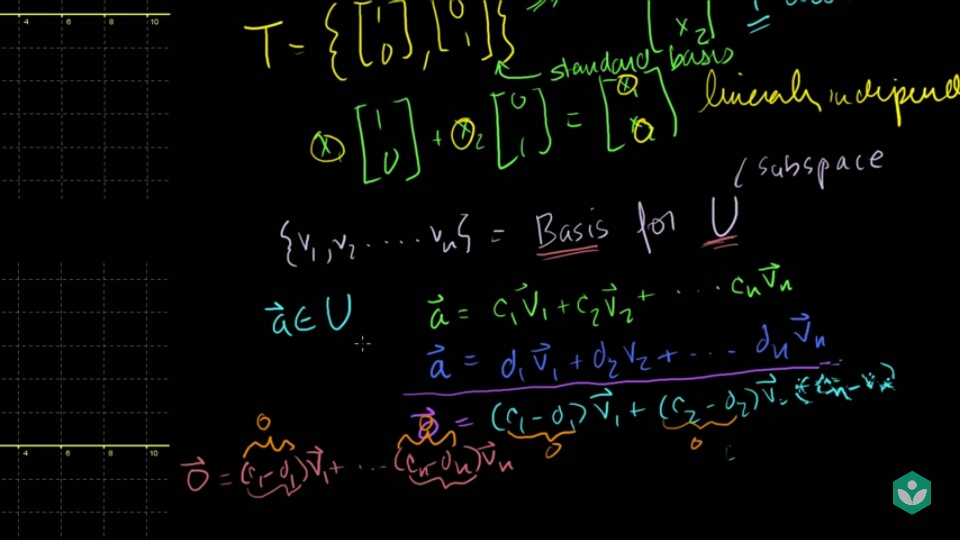 4 6 8 10
T = {[1 0], [0 1]}
x₂
standard basis
x₁ [1 0] + x₂ [0 1] = [x₁ x₂]
linearly independ
subspace
{v₁, v₂ ..... vₙ} = Basis for U
a⃗ ∈ U
a⃗ = c₁v⃗₁ + c₂v⃗₂ + ... cₙv⃗ₙ
a⃗ = d₁v⃗₁ + d₂v₂ + ... dₙv⃗ₙ
= (c₁-d₁)v⃗₁ + (c₂-d₂)v⃗
0 0 0 0
0⃗ = (c₁-d₁)v⃗₁ + ... (cₙ-dₙ)v⃗ₙ
4 6 8 10